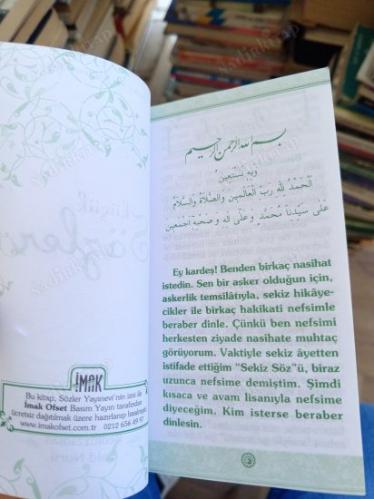 Küçük
Sözler
İMAK
Bu kitap, Sözler Yayınevi'nin izni ile
İmak Ofset Basım Yayın tarafından
ücretsiz dağıtılmak üzere hazırlanıp basılmıştır.
www.imakofset.com.tr 0212 656 49 97
بسم الله الرحمن الرحيم
وَبِهِ نَسْتَعِينُ
اَلْحَمْدُ لِلّٰهِ رَبِّ الْعَالَمِينَ وَالصَّلاَةُ وَالسَّلاَمُ
عَلَى سَيِّدِنَا مُحَمَّدٍ وَعَلَى اٰلِهِ وَصَحْبِهِ اَجْمَعِينَ
Ey kardeş! Benden birkaç nasihat
istedin. Sen bir asker olduğun için,
askerlik temsilâtıyla, sekiz hikâye-
cikler ile birkaç hakikati nefsimle
beraber dinle. Çünkü ben nefsimi
herkesten ziyade nasihate muhtaç
görüyorum. Vaktiyle sekiz âyetten
istifade ettiğim "Sekiz Söz"ü, biraz
uzunca nefsime demiştim. Şimdi
kısaca ve avam lisanıyla nefsime
diyeceğim. Kim isterse beraber
dinlesin.